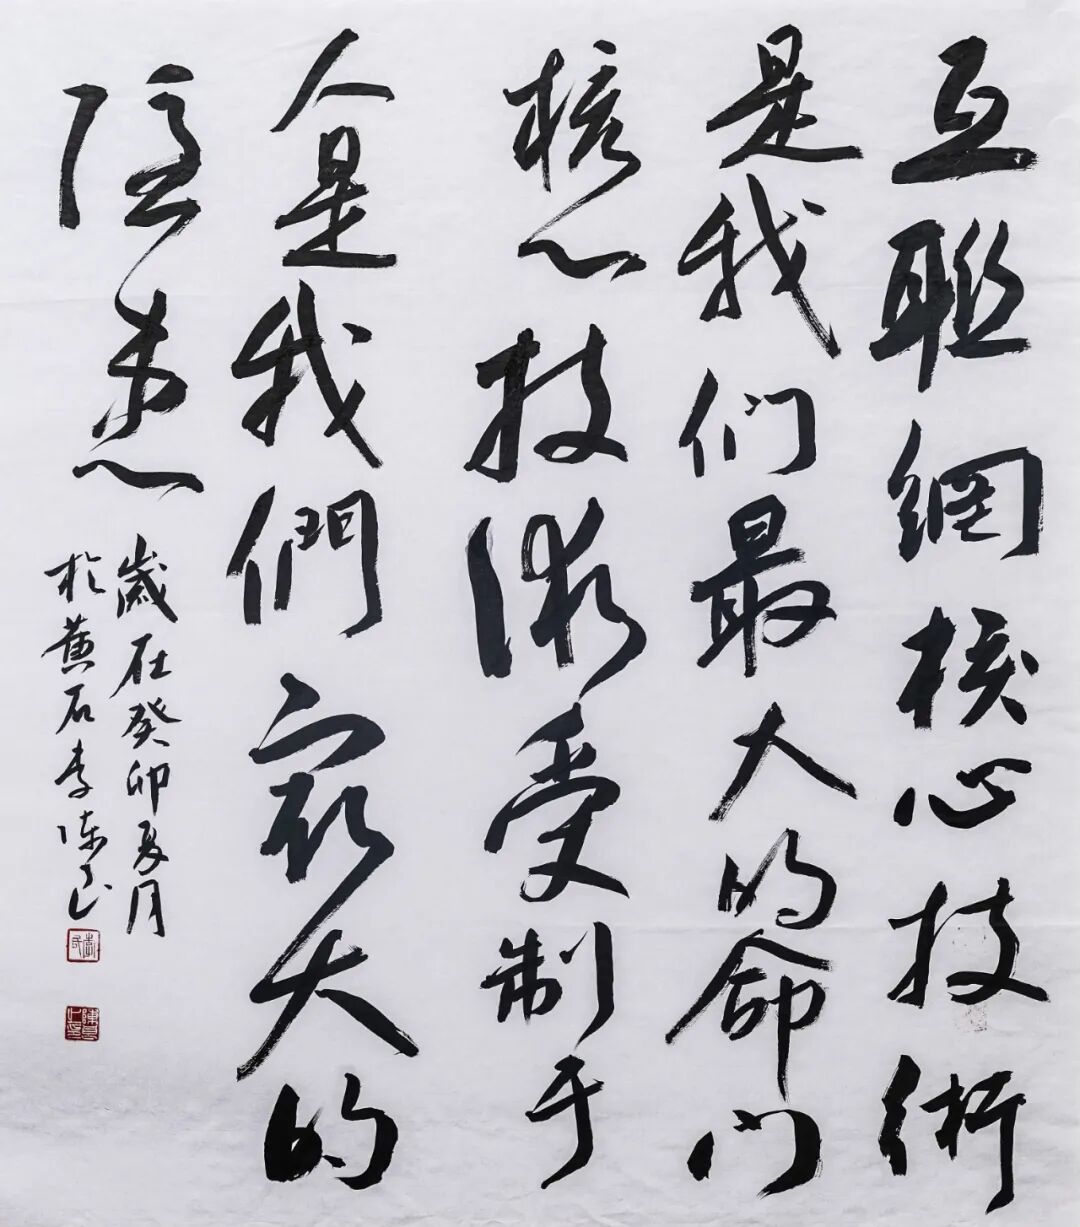 互聯網核心技術
是我们最大的命门
核心技術受制于
人是我們最大的
隱患
歲在癸卯夏月
於蕉石李陳玉